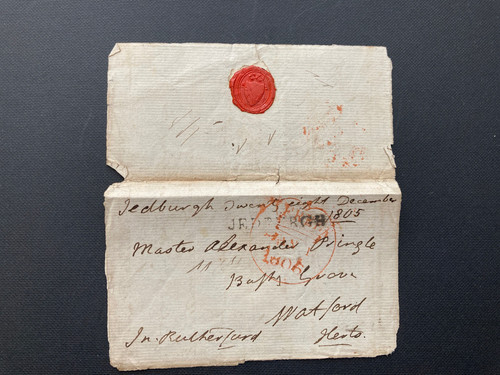 Jedburgh Twenty eight December
1805
JEDBURGH
Master Alexander Pringle
Watford
Jn. Rutherfurd Herts.